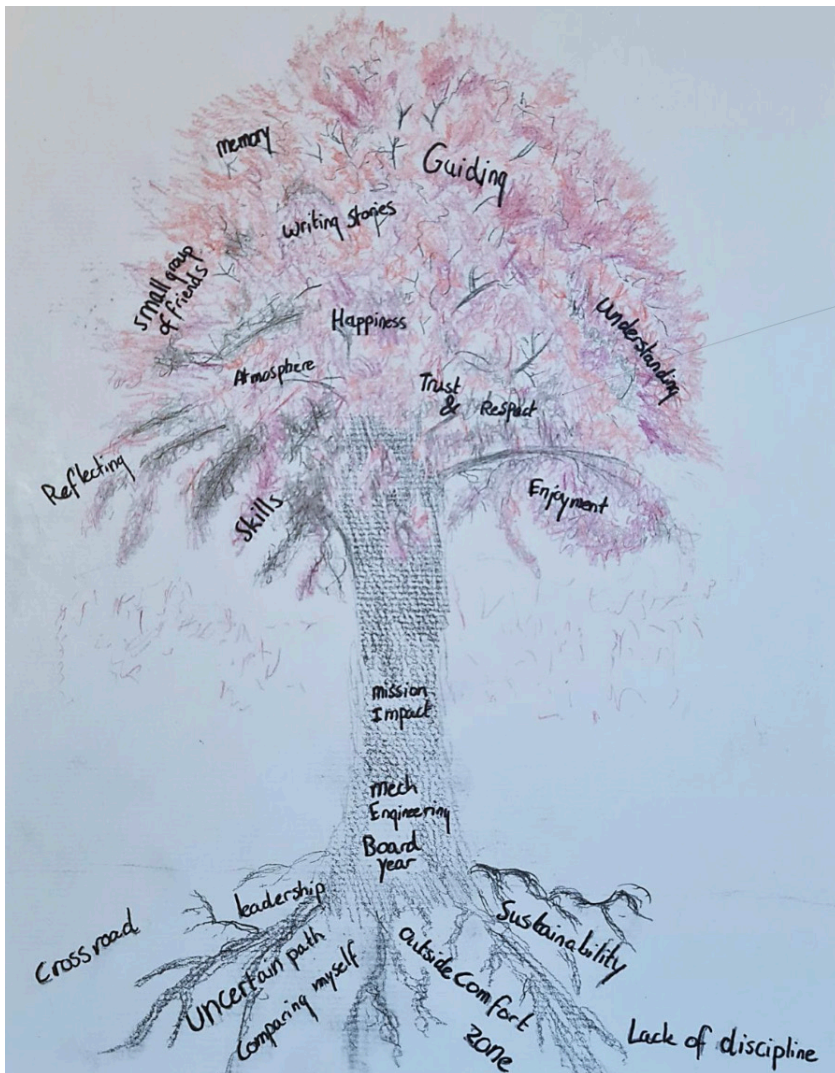 memory
Guiding
writing stories
small group
of friends
Happiness
Understanding
Atmosphere
Trust
& Respect
Reflecting
Skills
Enjoyment
mission
Impact
mech
Engineering
Board
year
leadership
Sustainability
Crossroad
Uncertain path
Comparing myself
Outside comfort
zone
Lack of discipline